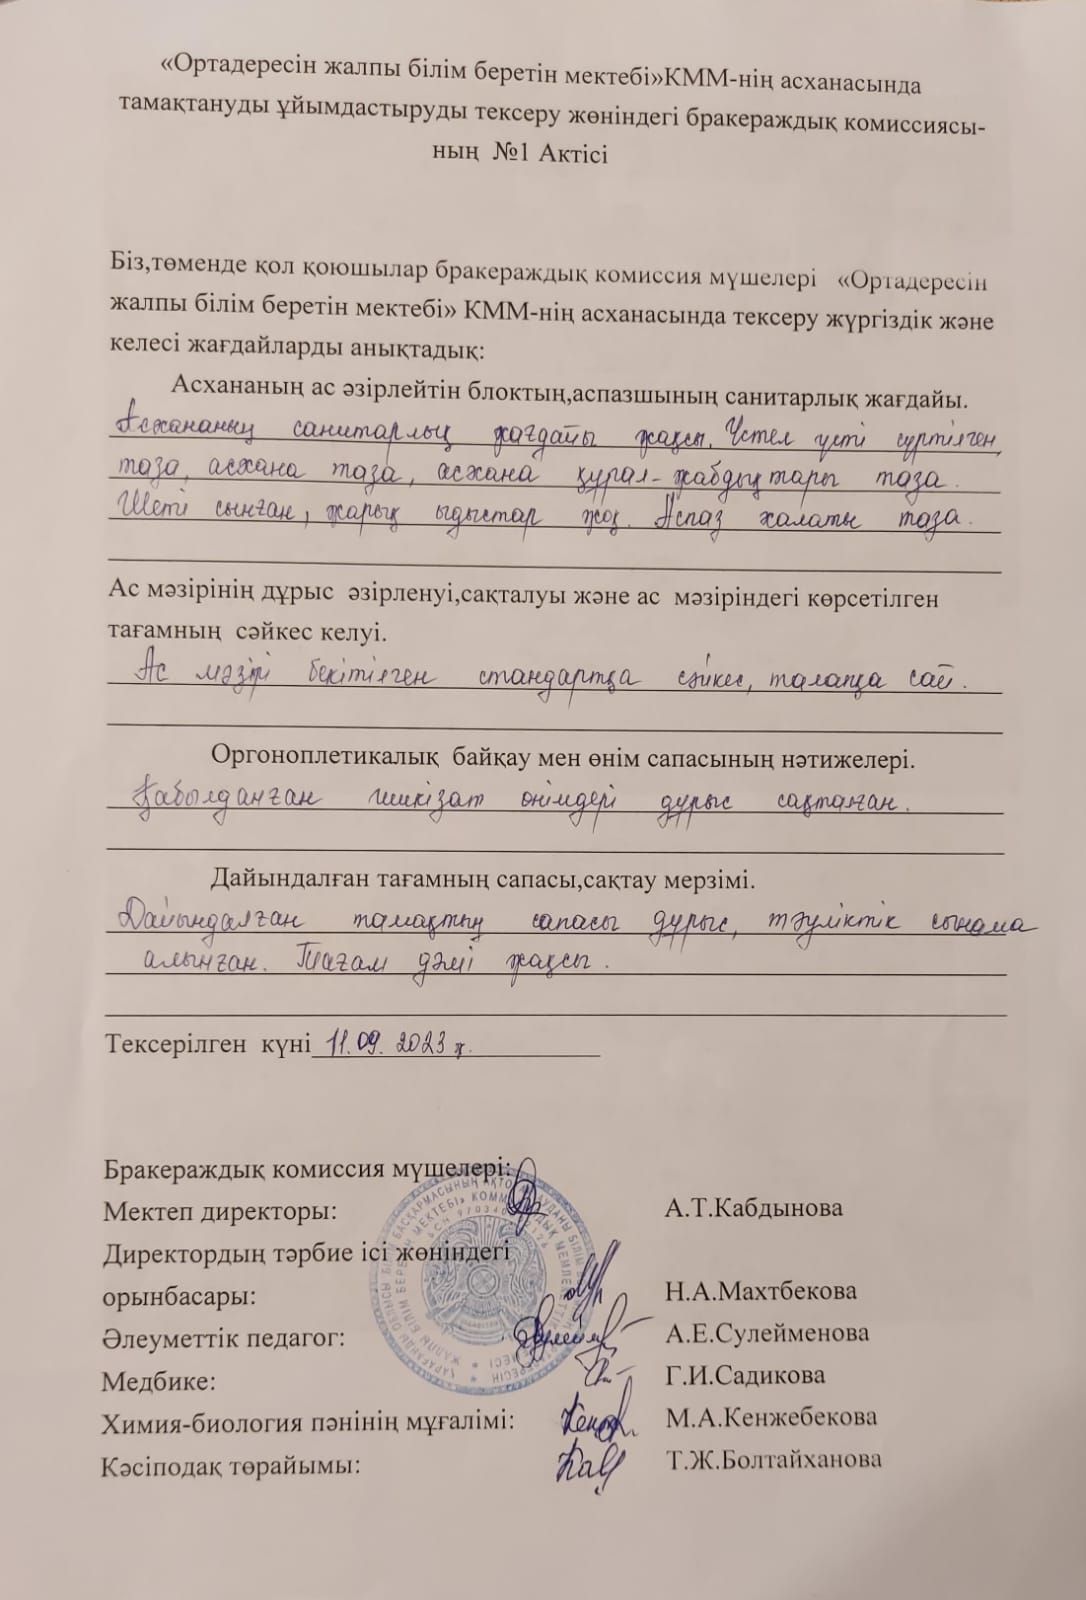 «Ортадересін жалпы білім беретін мектебі»КММ-нің асханасында
тамақтануды ұйымдастыруды тексеру жөніндегі бракераждық комиссиясы-
ның №1 Актісі
Біз,төменде қол қоюшылар бракераждық комиссия мүшелері «Ортадересін
жалпы білім беретін мектебі» КММ-нің асханасында тексеру жүргіздік және
келесі жағдайларды анықтадық:
Асхананың ас әзірлейтін блоктың,аспазшының санитарлық жағдайы.
Асхананың санитарлық жағдайы жақсы. Үстел үсті сүртілген,
таза, асхана таза, асхана құрал-жабдықтары таза.
Шеті сынған, жарық ыдыстар жоқ. Аспаз халаты таза.
Ас мәзірінің дұрыс әзірленуі,сақталуы және ас мәзіріндегі көрсетілген
тағамның сәйкес келуі.
Ас мәзірі бекітілген стандартқа сәйкес, талапқа сай.
Оргоноплетикалық байқау мен өнім сапасының нәтижелері.
Қабылданған шикізат өнімдері дұрыс сақталған.
Дайындалған тағамның сапасы,сақтау мерзімі.
Дайындалған тамақтың сапасы дұрыс, тәуліктік сынама
алынған. Тағам дәмі жақсы.
Тексерілген күні 11.09.2023 ж.
Бракераждық комиссия мүшелері:
Мектеп директоры: А.Т.Кабдынова
Директордың тәрбие ісі жөніндегі
орынбасары: Н.А.Махтбекова
Әлеуметтік педагог: А.Е.Сулейменова
Медбике: Г.И.Садикова
Химия-биология пәнінің мұғалімі: М.А.Кенжебекова
Кәсіподақ төрайымы: Т.Ж.Болтайханова